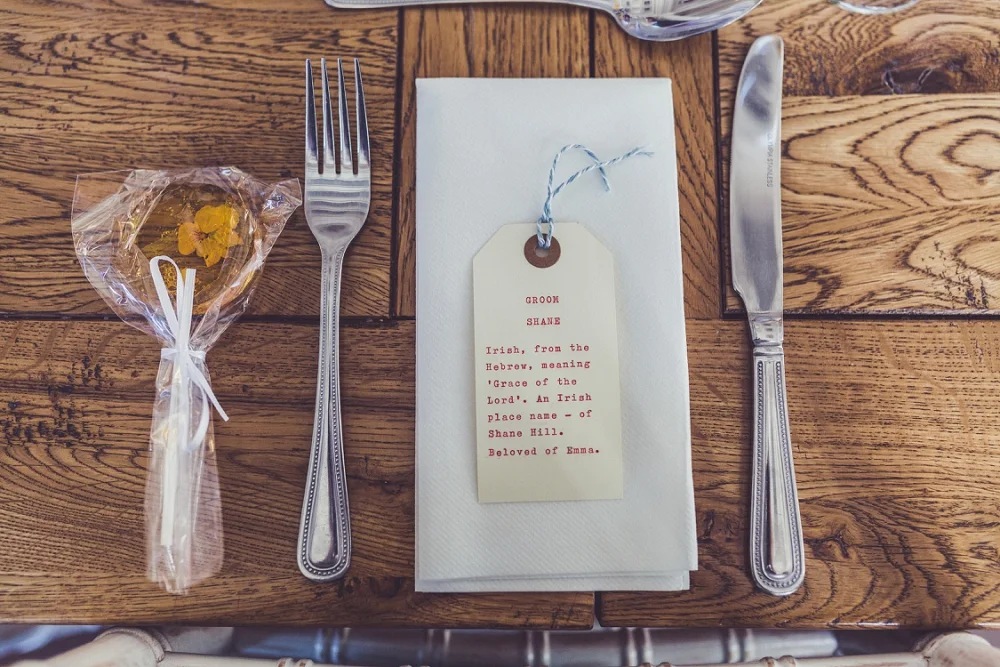 GROOM
SHANE
Irish, from the
Hebrew, meaning
'Grace of the
Lord'. An Irish
place name - of
Shane Hill.
Beloved of Emma.